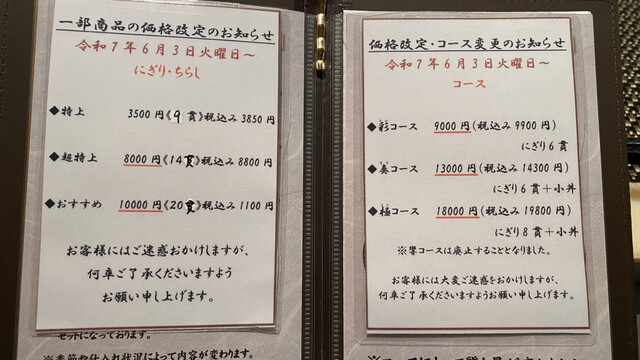 一部商品の価格改定のお知らせ
令和7年6月3日火曜日～
にぎり・ちらし
◆特上 3500円《9貫》税込み3850円
◆超特上 8000円《14貫》税込み8800円
◆おすすめ 10000円《20貫》税込み1100円
お客様にはご迷惑おかけしますが、
何卒ご了承くださいますよう
お願い申し上げます。
セットになっております。
※季節や仕入れ状況によって内容が変わります。
価格改定・コース変更のお知らせ
令和7年6月3日火曜日～
コース
◆彩コース 9000円(税込み9900円)
にぎり6貫
◆奏コース 13000円(税込み14300円)
にぎり6貫＋小丼
◆極コース 18000円(税込み19800円)
にぎり8貫＋小丼
※コースは廃止することとなりました。
お客様には大変ご迷惑をおかけしますが、
何卒ご了承くださいますようお願い申し上げます。